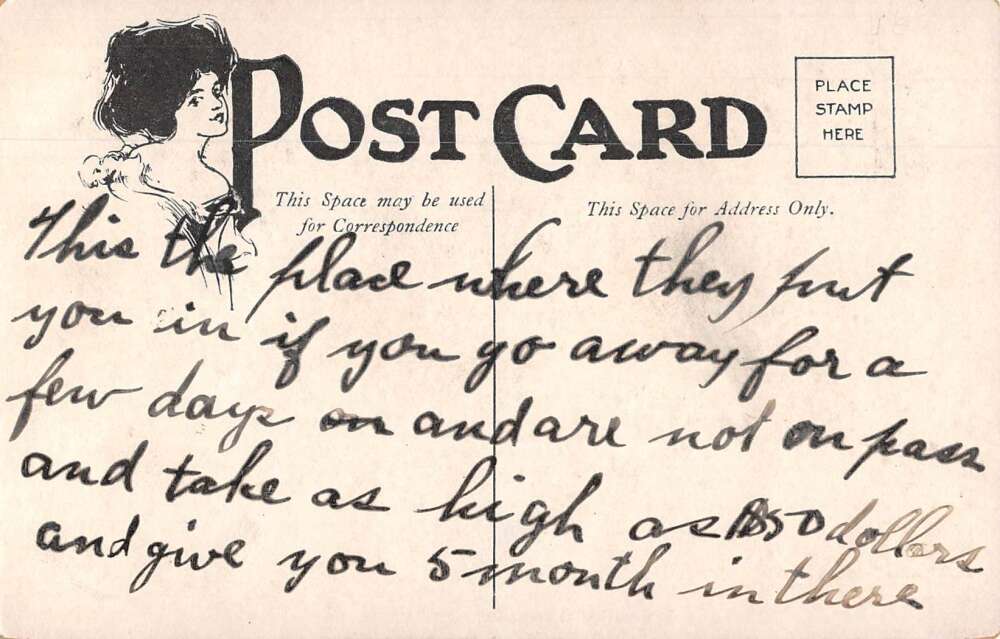 POST CARD
PLACE
STAMP
HERE
This Space may be used
for Correspondence
This Space for Address Only.
This the place where they put
you in if you go away for a
few days on and are not on pass
and take as high as $50 dollers
and give you 5 month in there